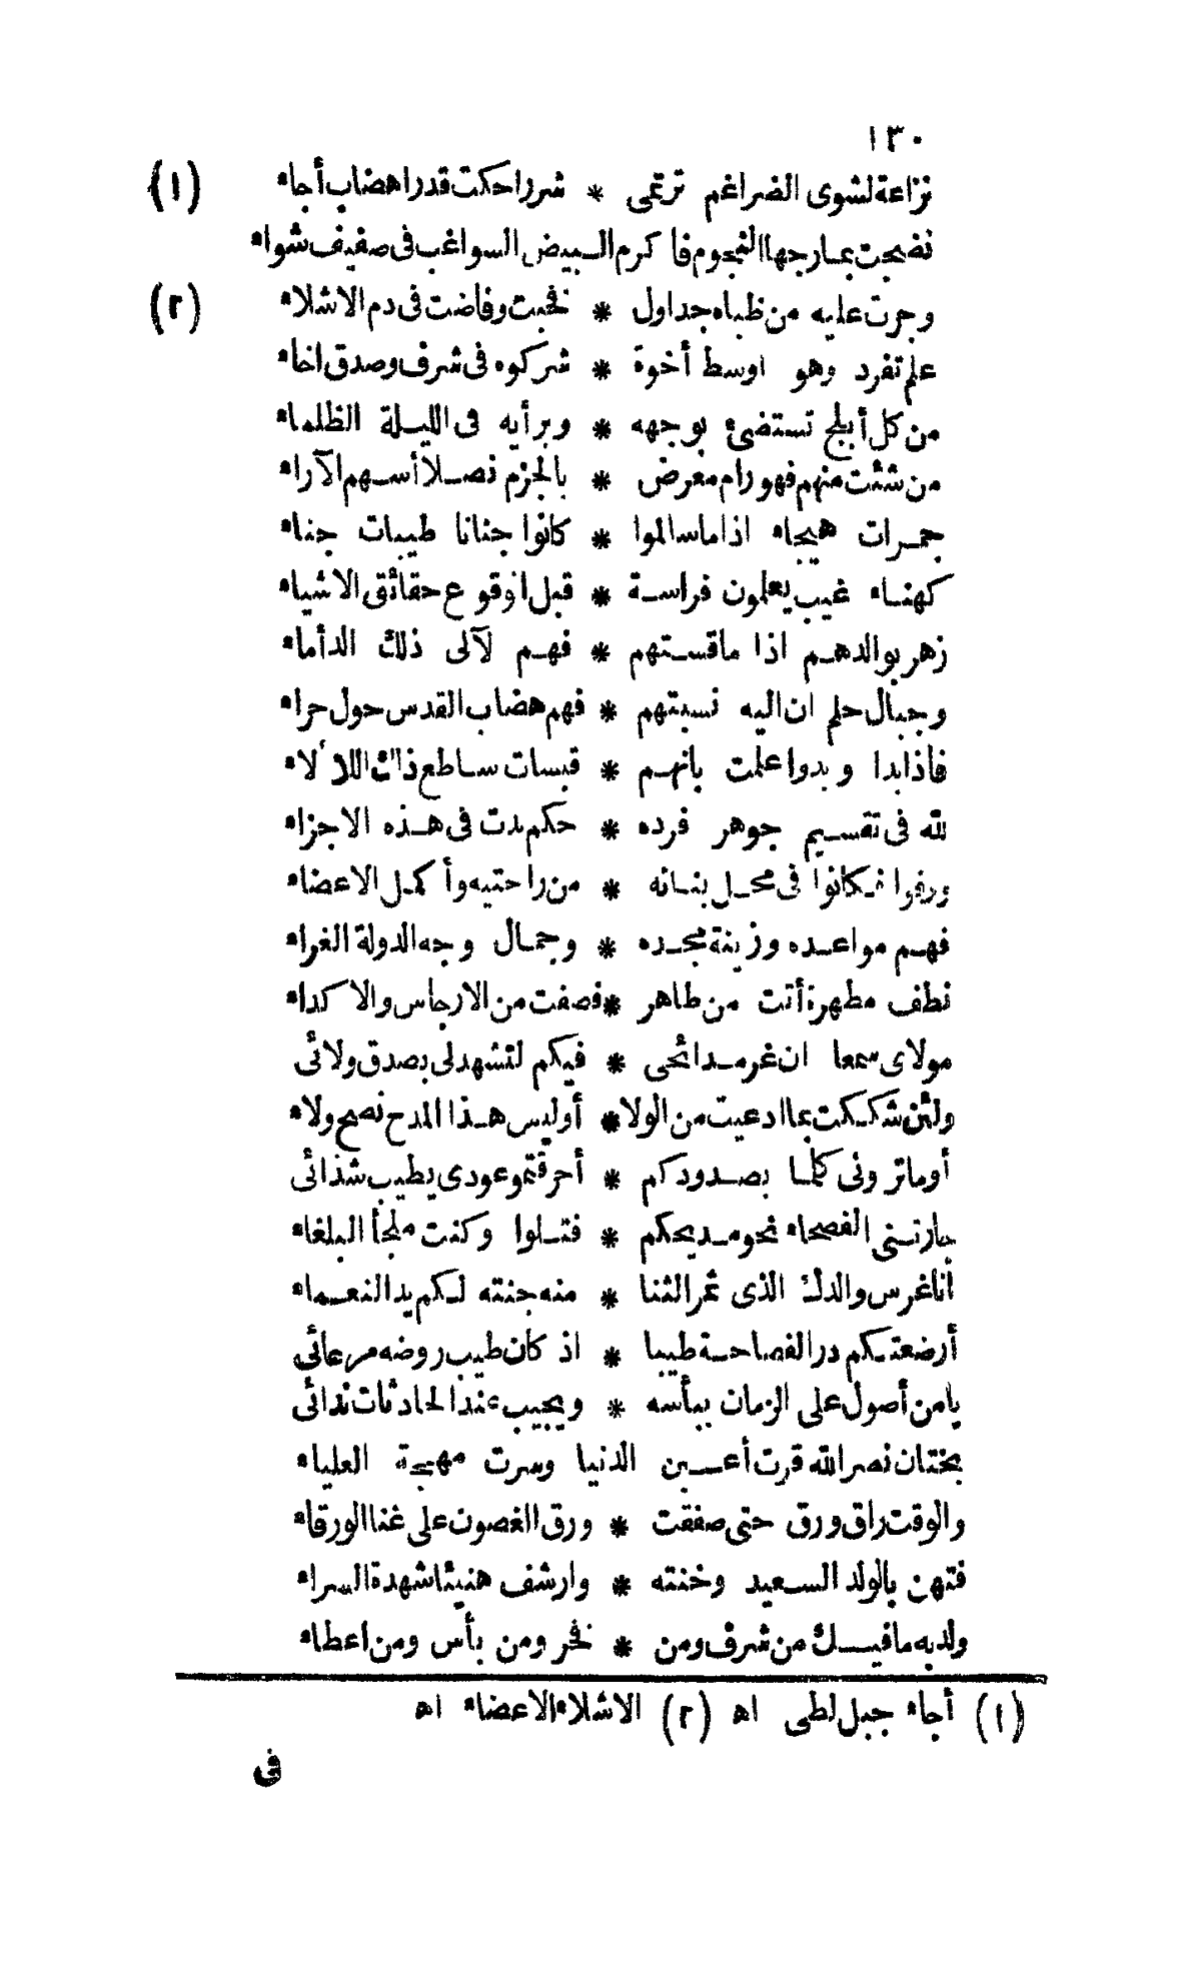 ١٣٠
نزاعة لشوى الضراغم ترتمى * شررا حكت قدرا هضاب أجاء (١)
نضجت بمارجها النجوم فاكرم البيض السواغب فى صفيف شواء
وجرت عليه من ظباه جداول * فخبت وفاضت فى دم الاشلاء (٢)
علم تفرد وهو اوسط أخوة * شركوه فى شرف وصدق اخاء
من كل أبلج تستضئ بوجهه * وبرأيه فى الليلة الظلماء
من شئت منهم فهو رام مغرض * بالجزم نصلا أسهم الآراء
جمرات هيجاء اذا ما سالموا * كانوا جنانا طيبات جناء
كهناء غيب يعلمون فراسة * قبل الوقوع حقائق الاشياء
زهر بوالدهم اذا ما قستهم * فهم لآلى ذلك الدأماء
وجبال حلم ان اليه نسبتهم * فهم هضاب القدس حول حراء
فاذا بدا وبدوا علمت بانهم * قبسات ساطع ذلك اللألاء
لله فى تقسيم جوهر فرده * حكم بدت فى هذه الاجزاء
ورفوا فكانوا فى محل بنانه * من راحتيه وأكمل الاعضاء
فهم مواعده وزينة مجده * وجمال وجه الدولة الغراء
نطف مطهرة أتت من طاهر * فصفت من الارجاس والاكداء
مولاى سمعا ان غر مدائحى * فيكم لتشهد لى بصدق ولائى
ولئن شككت بما ادعيت من الولا * أوليس هذا المدح نصح ولاء
أوما ترونى كلما بصدودكم * أحرقتمو عودى يطيب شذائى
جارتنى الفصحاء نحو مديحكم * فتلوا وكنت ملجأ البلغاء
أنا غرس والدك الذى ثمر الثنا * منه جنته لكم يد النعماء
أرضعتكم در الفصاحة طيبا * اذ كان طيب روضه مرعائى
يا من أصول على الزمان ببأسه * ويجيب عند الحادثات ندائى
بختان نصر الله قرت أعين الدنيا وسرت مهجة العلياء
والوقت راق ورق حتى صفقت * ورق الغصون على غنا الورقاء
فتهن بالولد السعيد وختنه * وارشف هنيئا شهدة السراء
ولد به ما فيك من شرف ومن * فخر ومن بأس ومن اعطاء
(١) أجاء جبل لطى اه (٢) الاشلاء الاعضاء اه
فى